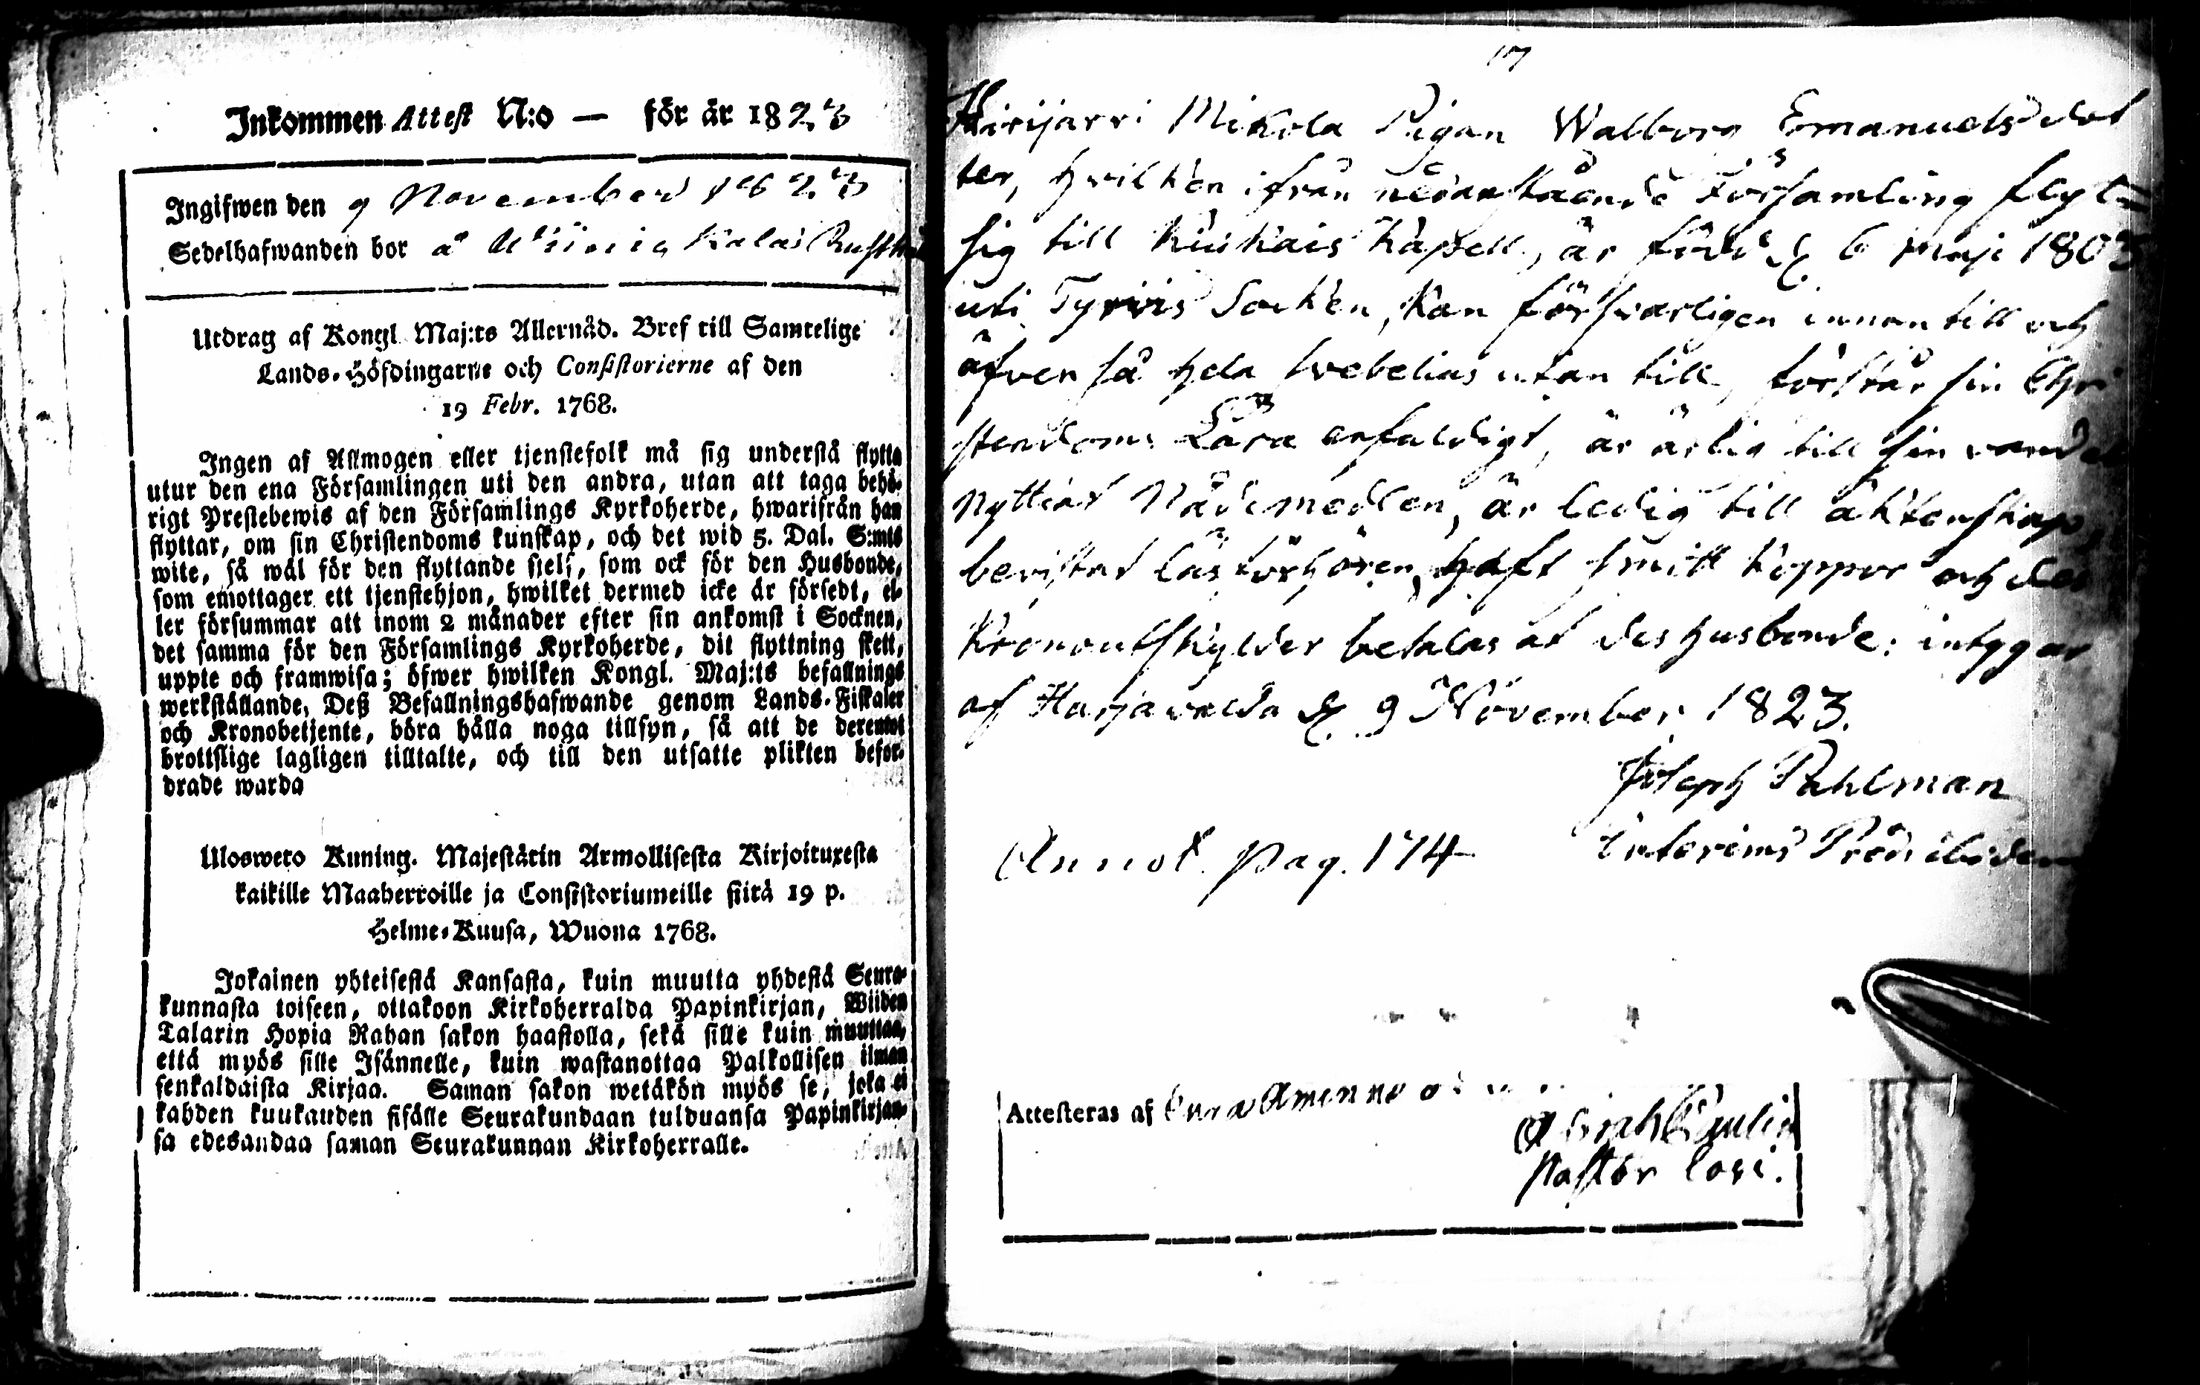 Inkommen Attest N:o — för år 1823
Ingifwen den 9 November 1823
Sedelhafwanden bor å
Utdrag af Kongl. Maj:ts Allernåd. Bref till Samtelige
Lands-Höfdingarne och Consistorierne af den
19 Febr. 1768.
Ingen af Allmogen eller tjenstefolk må sig understå flytta
utur den ena Församlingen uti den andra, utan att taga behö-
rigt Prestebewis af den Församlings Kyrkoherde, hwarifrån han
flyttar, om sin Christendoms kunskap, och det wid 5. Dal. S:mts
wite, så wäl för den flyttande sielf, som ock för den Husbonde,
som emottager ett tjenstehjon, hwilket dermed icke är försedt, el-
ler försummar att inom 2 månader efter sin ankomst i Socknen,
det samma för den Församlings Kyrkoherde, dit flyttning skett,
uppte och framwisa; öfwer hwilken Kongl. Maj:ts befallnings
werkställande, Deß Befallningshafwande genom Lands-Fiskaler
och Kronobetjente, böra hålla noga tillsyn, så att de deremot
brottslige lagligen tilltalte, och till den utsatte plikten befor-
drade warda
Uloswero Kuning. Majestätin Armollisesta Kirjoituxesta
kaikille Maaherroille ja Consistoriumeille siitä 19 p.
Helme-Kuusa, Wuona 1768.
Jokainen yhteisestä Kansasta, kuin muutta yhdestä Seura-
kunnasta toiseen, ottakoon Kirkoherralda Papinkirjan, Wiiden
Talarin Hopia Rahan sakon haastolla, sekä sille kuin muuttaa,
että myös sille Isännelle, kuin wastanottaa Palkollisen ilman
senkaldaista Kirjaa. Saman sakon wetäkön myös se, joka ei
kahden kuukauden sisälle Seurakundaan tulduansa Papinkirjan-
sa edesandaa saman Seurakunnan Kirkoherralle.
17
Mikola Pigan Walborg Emanuelsdot
ter, hvilken ifrån nedanstående Församling flyt=
sig till Kiukais Kapell, är född d. 6 Maji 1803
uti Tyrvis Socken, kan försvarligen innantill och
äfven så hela Svebelius utan till, förstår sin Chri
stendoms Lära enfaldigt, är ärlig till sin vandel
nyttjat Nådemedlen, är ledig till äktenskap,
bevistat läsförhören, haft smitt koppor och des
Kronoutskylder betalas af des husbonde: intygar
af Harjavalda d. 9 November 1823.
Joseph Pahlman
Annot. pag. 174 Interims Predikoden
Attesteras af Eura
Pastor Loci.